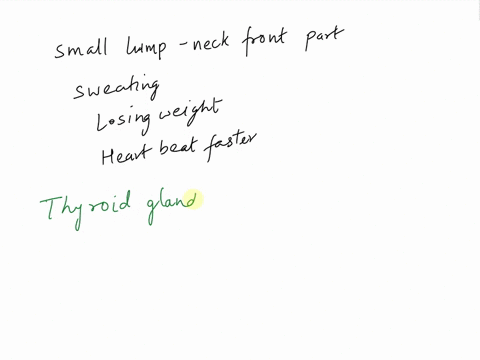 small lump - neck front part
sweating
Losing weight
Heart beat faster
Thyroid gland